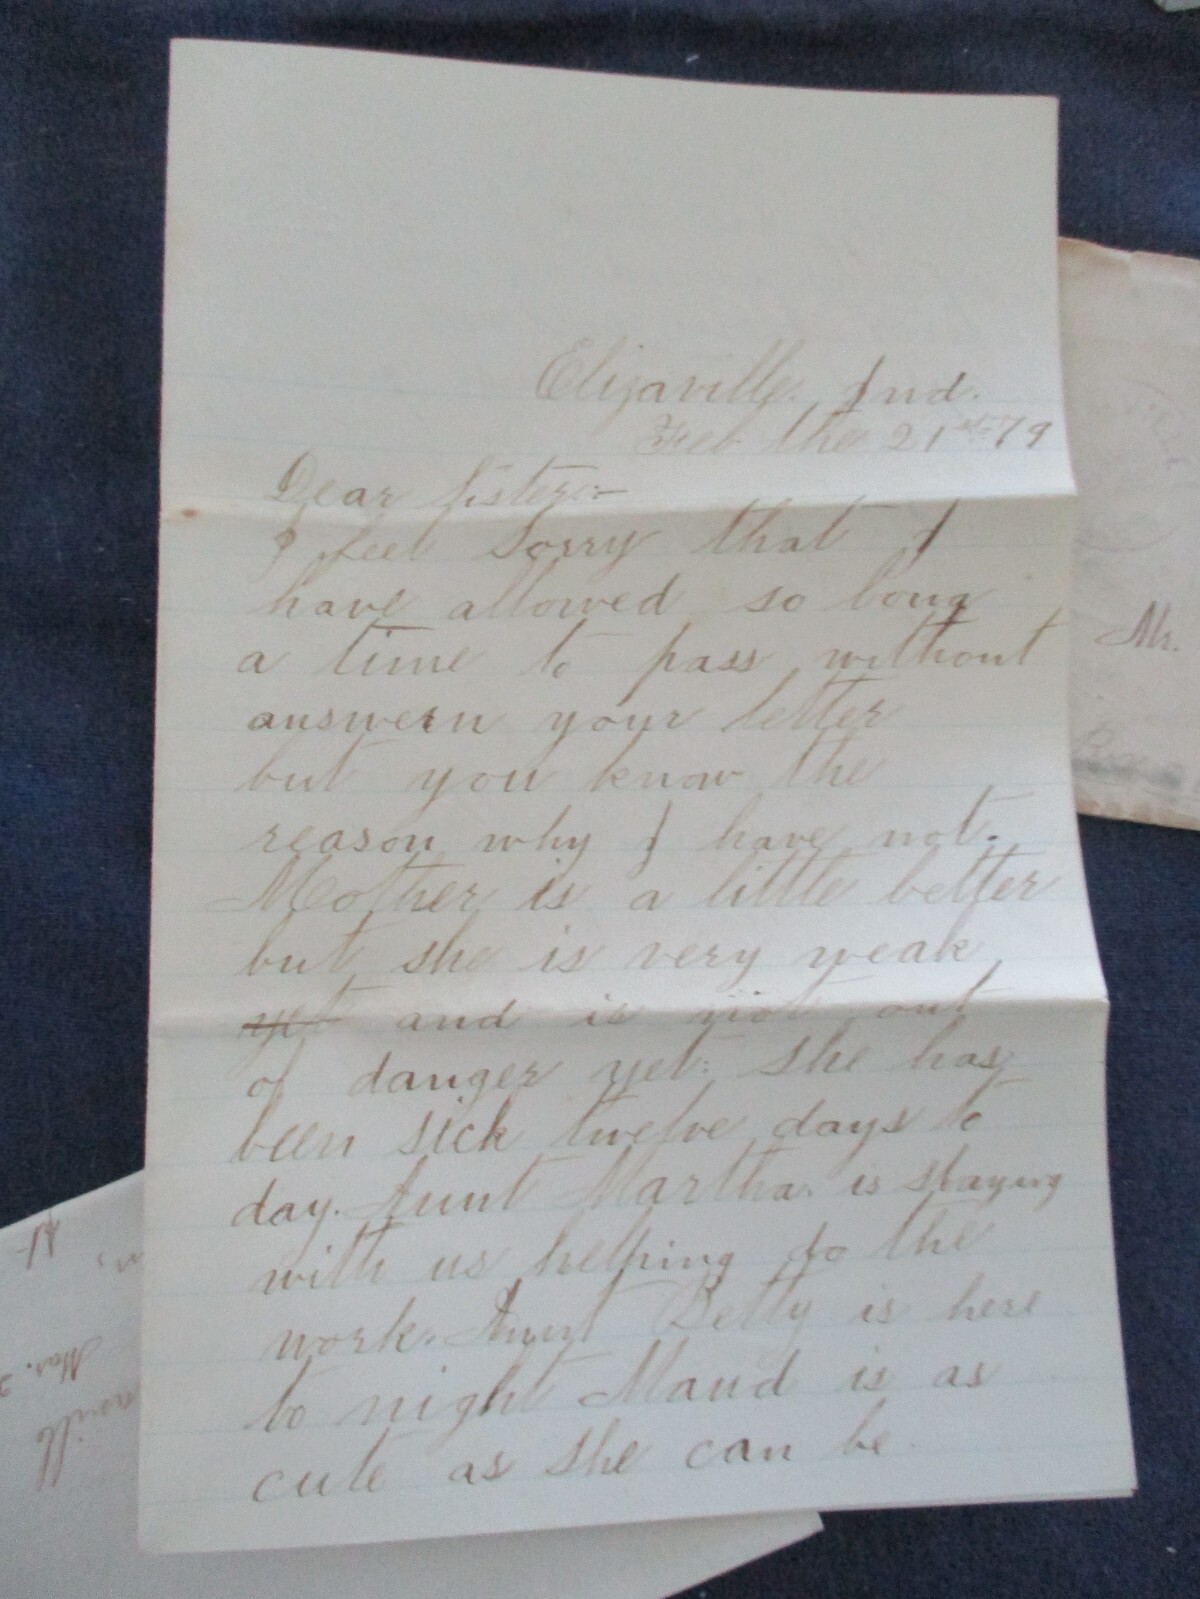 Elizaville, Ind.
Feb the 21st 79
Dear Sister:-
I feel Sorry that I
have allowed so long
a time to pass without
answern your letter
but you know the
reason why I have not.
Mother is a little better
but she is very weak
yet and is not out
of danger yet. She has
been sick twelve days to
day. Aunt Martha. is staying
with us helping do the
work. Aunt Betty is here
to night Maud is as
cute as she can be.
Mr.
Mar.